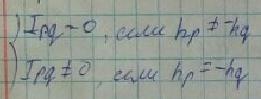 Ipq = 0, если hp ≠ -hq
Ipq ≠ 0, если hp = -hq